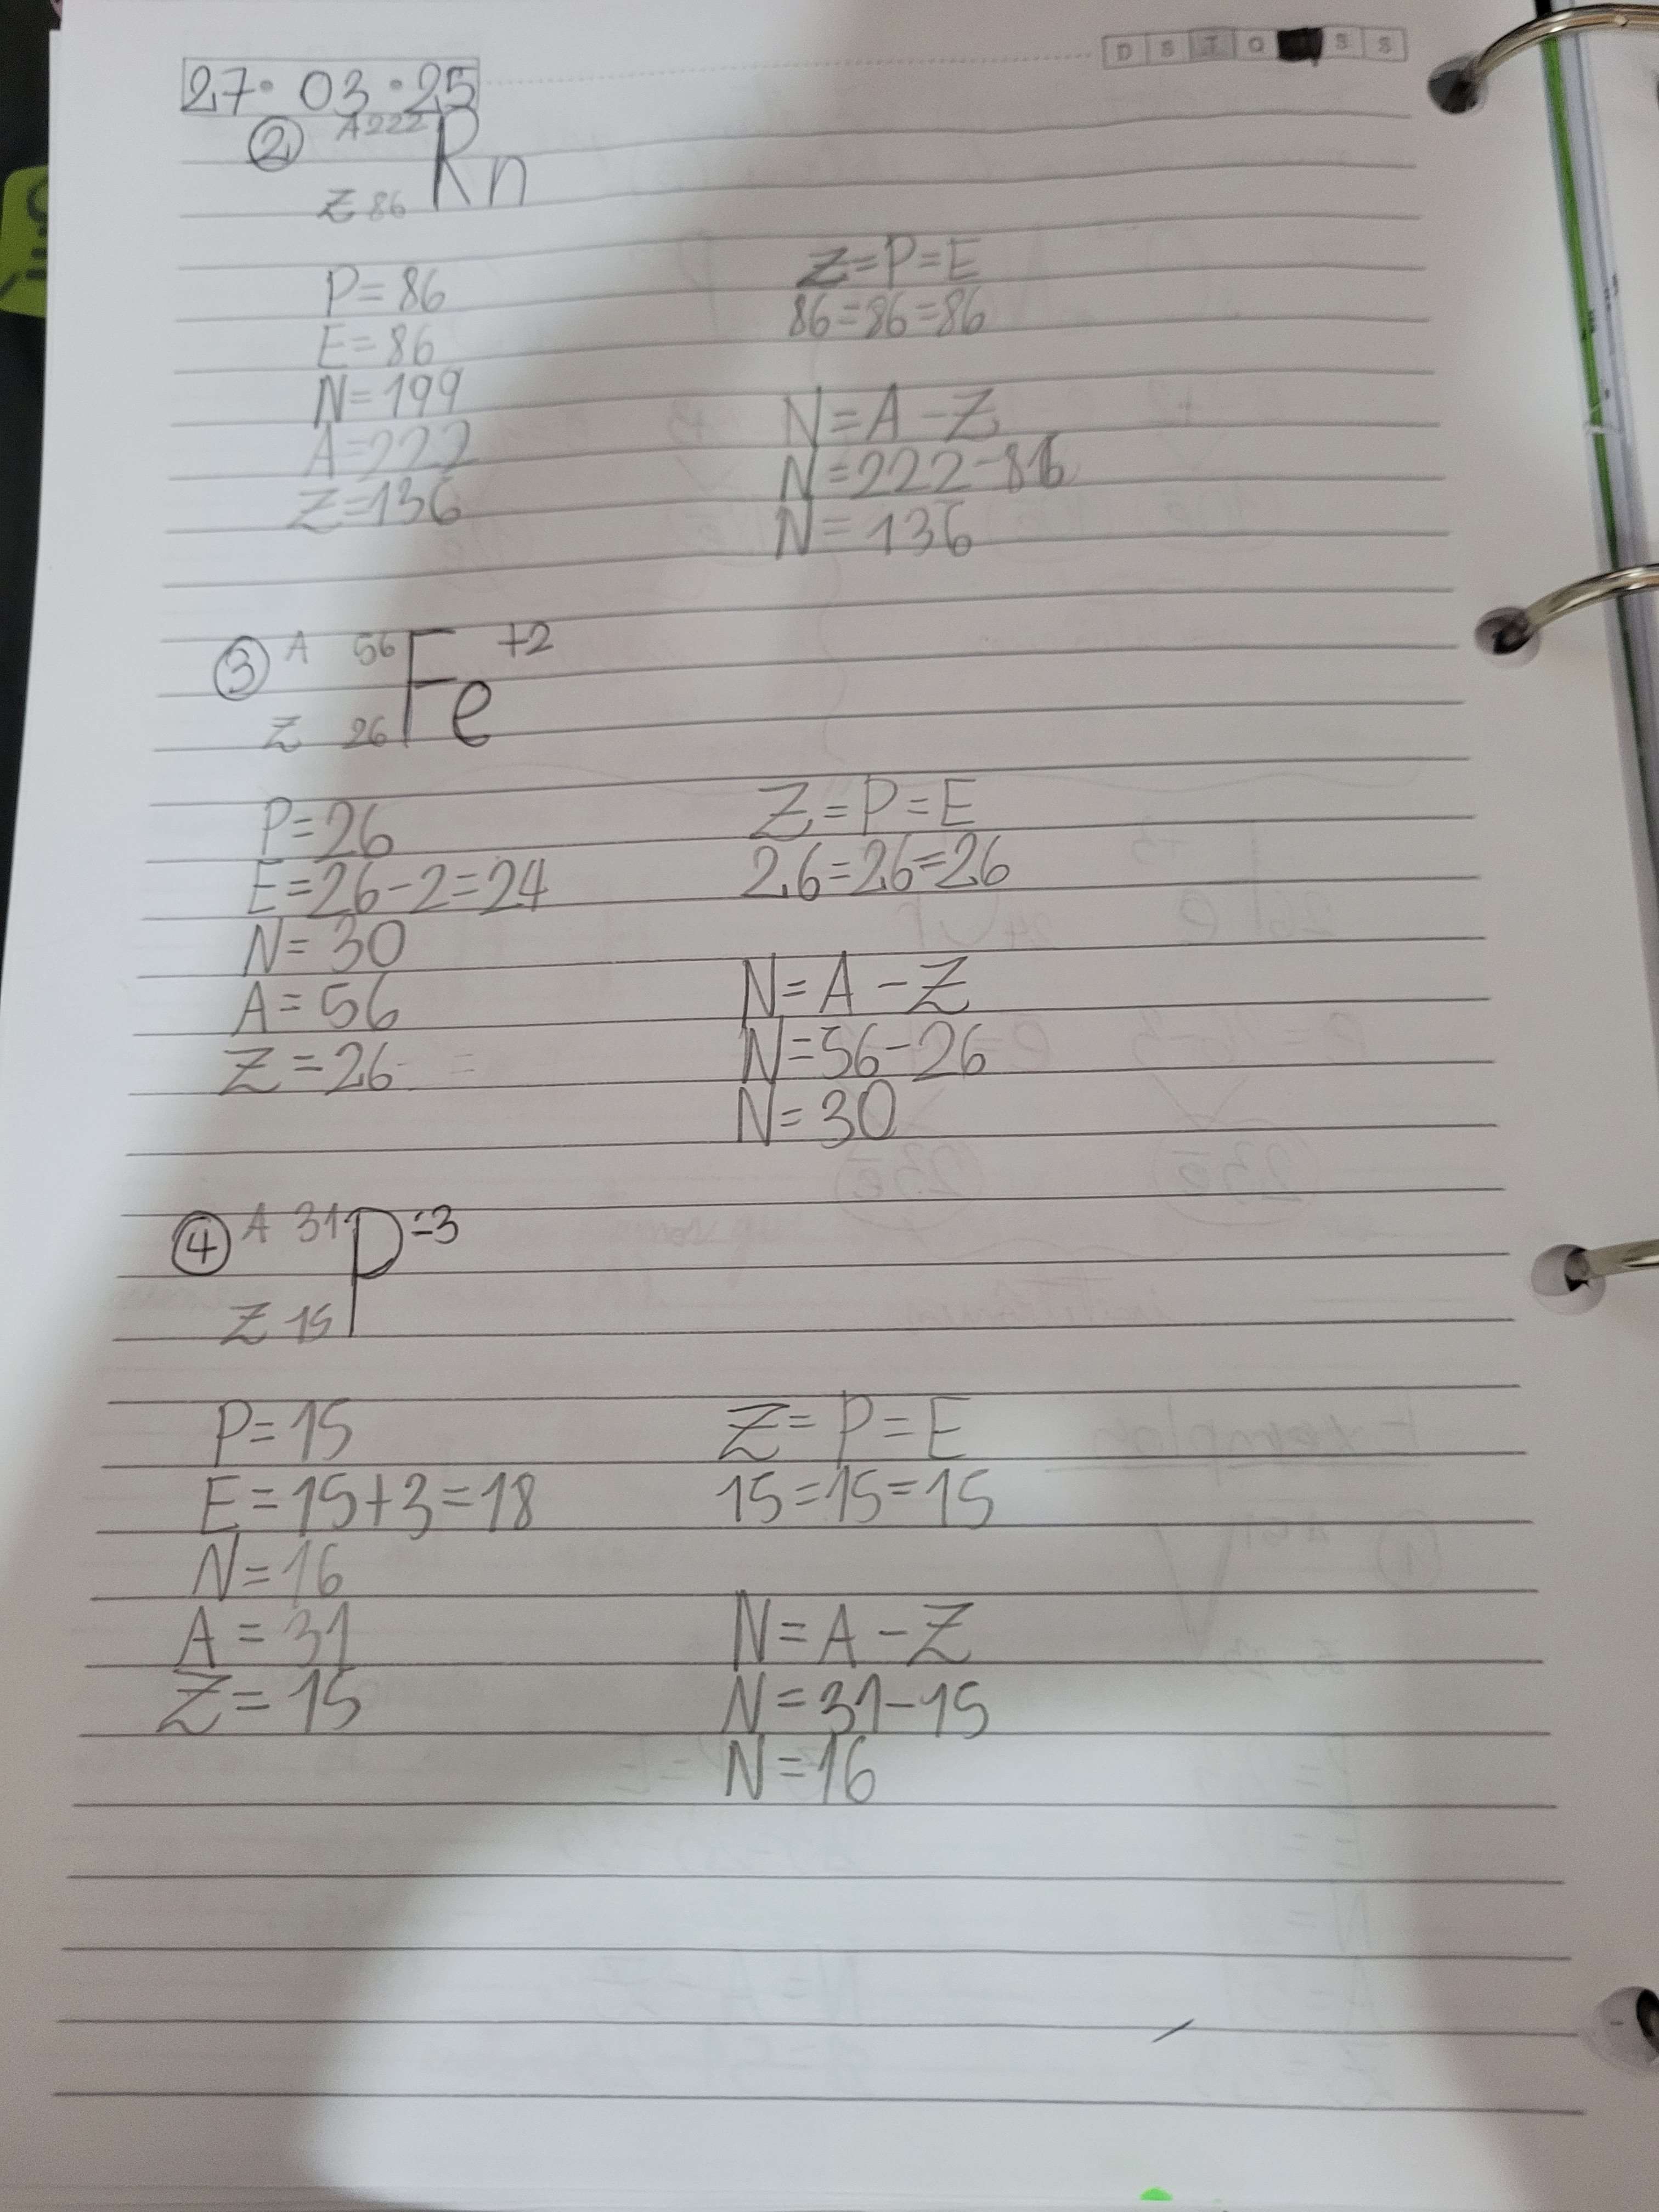 D S T Q S S
27.03.25
② A 222 Rn
Z 86
P=86
E=86
N=199
A=222
Z=136
Z=P=E
86=86=86
N=A-Z
N=222-86
N=136
③ A 56 Fe +2
Z 26
P=26
E=26-2=24
N=30
A=56
Z=26
Z=P=E
26=26=26
N=A-Z
N=56-26
N=30
④ A 31 P -3
Z 15
P=15
E=15+3=18
N=16
A=31
Z=15
Z=P=E
15=15=15
N=A-Z
N=31-15
N=16